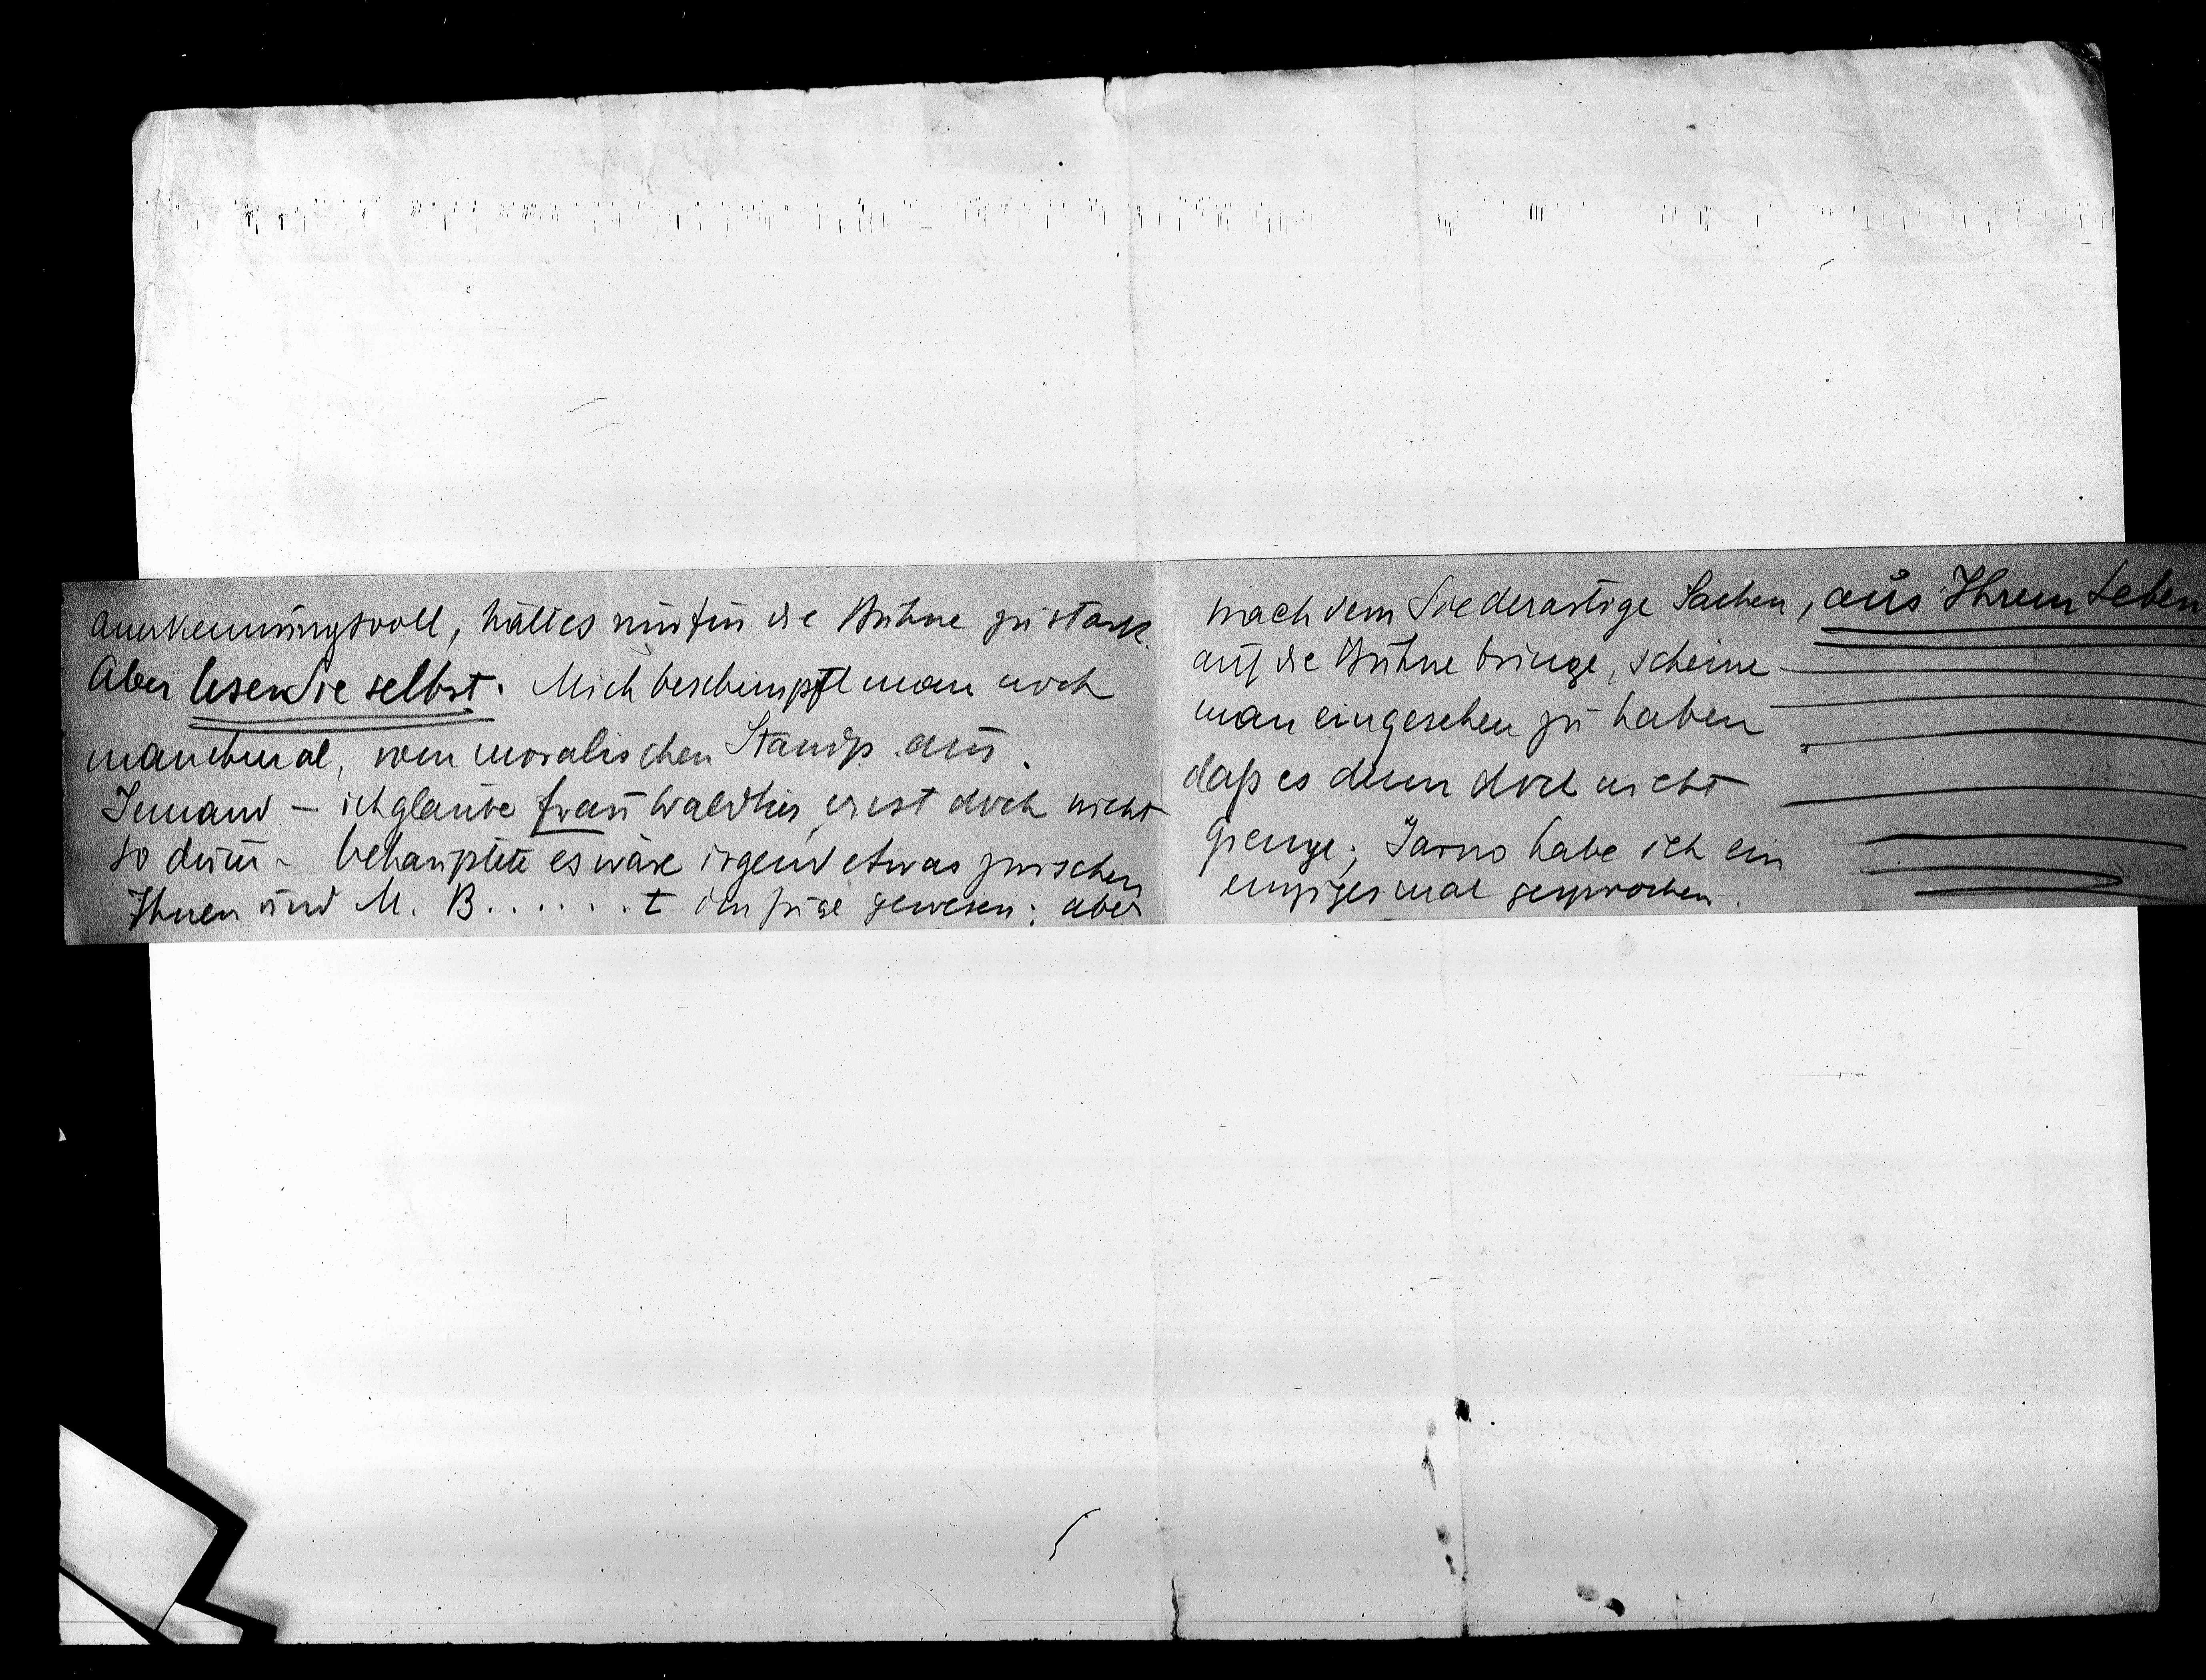 anerkennungsvoll, hält es nur für die Bühne zu stark.
Aber lesen Sie selbst. Mich beschimpft man noch
manchmal, vom moralischen Standp. aus.
Jemand – ich glaube Frau Waldthis, es ist doch nicht
so dum – behauptete es wäre irgend etwas zwischen
Ihnen und M. B. . . . . . . t im
gewesen; aber
nach dem Sie derartige Sachen, aus Ihrem Leben
auf die Bühne bringe, scheine
man eingesehen zu haben
daß es denn doch nicht
gienge; Jarno habe ich ein
einziges mal gesprochen.